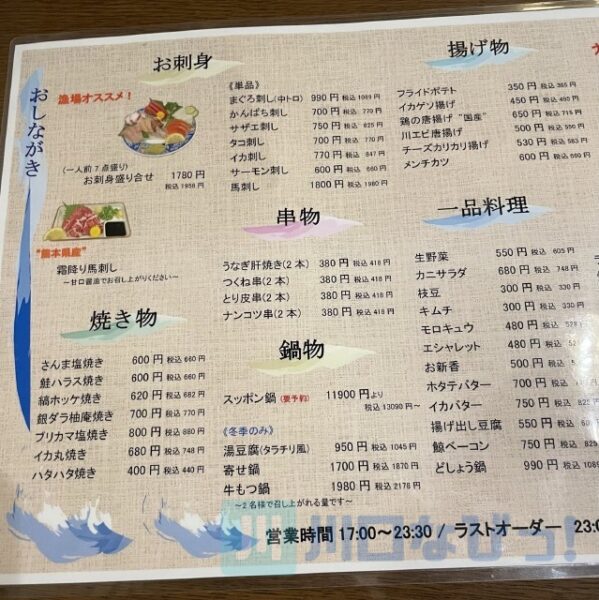 おしながき
お刺身
漁場オススメ！
(一人前７点盛り)
お刺身盛り合せ 1780円
税込 1958円
"熊本県産"
霜降り馬刺し
～甘口醤油でお召し上がりください～
《単品》
まぐろ刺し(中トロ) 990円 税込 1089円
かんぱち刺し 700円 税込 770円
サザエ刺し 750円 税込 825円
タコ刺し 700円 税込 770円
イカ刺し 770円 税込 847円
サーモン刺し 600円 税込 660円
馬刺し 1800円 税込 1980円
串物
うなぎ肝焼き(2本) 380円 税込 418円
つくね串(2本) 380円 税込 418円
とり皮串(2本) 380円 税込 418円
ナンコツ串(2本) 380円 税込 418円
焼き物
さんま塩焼き 600円 税込 660円
鮭ハラス焼き 600円 税込 660円
縞ホッケ焼き 620円 税込 682円
銀ダラ柚庵焼き 700円 税込 770円
ブリカマ塩焼き 800円 税込 880円
イカ丸焼き 680円 税込 748円
ハタハタ焼き 400円 税込 440円
鍋物
スッポン鍋 (要予約) 11900円より
税込 13090円～
《冬季のみ》
湯豆腐(タラチリ風) 950円 税込 1045円
寄せ鍋 1700円 税込 1870円
牛もつ鍋 1980円 税込 2178円
～2名様で召し上がれる量です～
揚げ物
フライドポテト 350円 税込 385円
イカゲソ揚げ 450円 税込 495円
鶏の唐揚げ "国産" 650円 税込 715円
川エビ唐揚げ 500円 税込 550円
チーズカリカリ揚げ 530円 税込 583円
メンチカツ 600円 税込 660円
一品料理
生野菜 550円 税込 605円
カニサラダ 680円 税込 748円
枝豆 300円 税込 330円
キムチ 300円 税込 330円
モロキュウ 480円 税込 528
エシャレット 480円 税込 528
お新香 500円 税込
ホタテバター 700円 税込
イカバター 750円 税込 825
揚げ出し豆腐 550円 税込
鯨ベーコン 750円 税込 825
どしょう鍋 990円 税込 1089
営業時間 17:00～23:30 / ラストオーダー 23:0
川口なびっ！